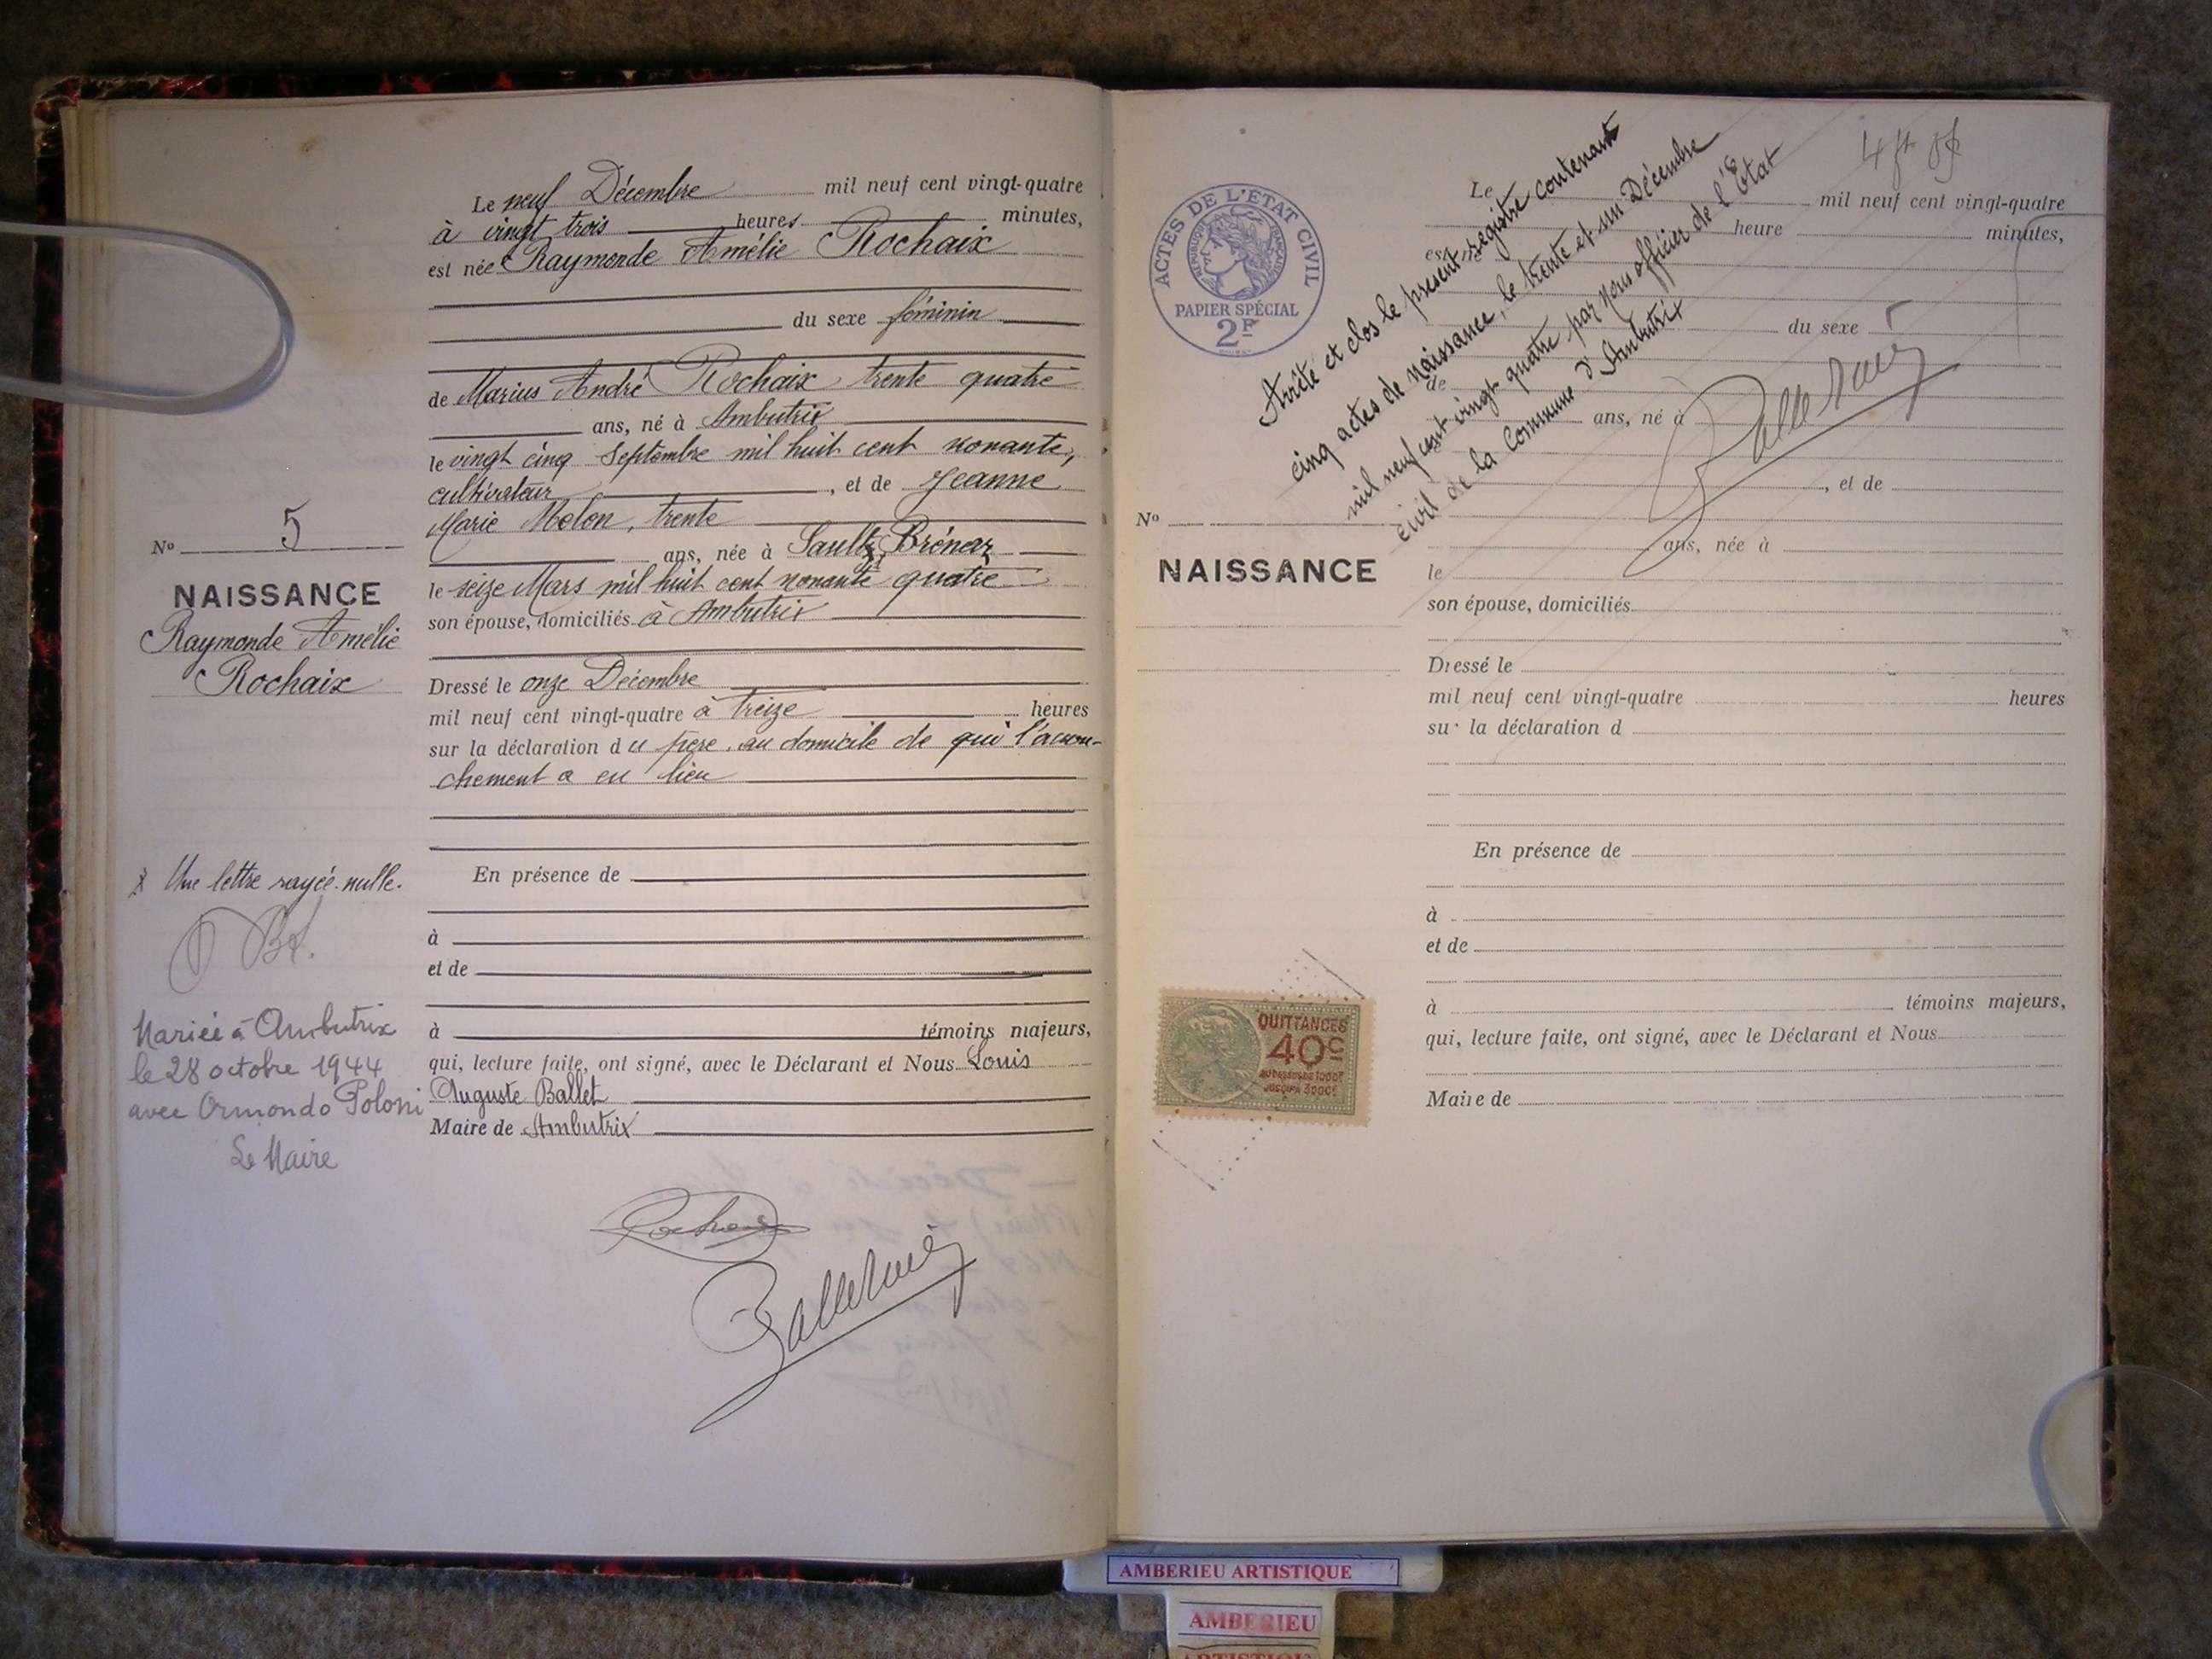 Le neuf Décembre mil neuf cent vingt-quatre
à vingt trois heures minutes,
est née Raymonde Amélie Rochaix
du sexe féminin
de Marius André Rochaix, trente quatre
ans, né à Ambutrix
le vingt cinq Septembre mil huit cent nonante,
cultivateur, et de Jeanne
Marie Molon, trente
ans, née à Sault Brénaz
le seize Mars mil huit cent nonante quatre
son épouse, domiciliés à Ambutrix
Dressé le onze Décembre
mil neuf cent vingt-quatre à treize heures
sur la déclaration du père, au domicile de qui l'accou-
chement a eu lieu
En présence de
à
et de
à témoins majeurs,
qui, lecture faite, ont signé, avec le Déclarant et Nous Louis
Auguste Ballet
Maire de Ambutrix
No 5
NAISSANCE
Raymonde Amélie
Rochaix
Une lettre rayée nulle.
Mariée à Ambutrix
le 28 octobre 1944
avec Ormondo Poloni
Le Maire
ACTES DE L'ETAT CIVIL
RÉPUBLIQUE FRANÇAISE
PAPIER SPÉCIAL
2F
Arrêté et clos le présent registre contenant
cinq actes de naissance, le trente et un Décembre
mil neuf cent vingt quatre par nous officier de l'Etat
civil de la Commune d'Ambutrix
Le mil neuf cent vingt-quatre
heure minutes,
est né
du sexe
de
ans, né à
, et de
ans, née à
le
son épouse, domiciliés
Dressé le
mil neuf cent vingt-quatre heures
sur la déclaration d
En présence de
à
et de
à témoins majeurs,
qui, lecture faite, ont signé, avec le Déclarant et Nous
Maire de
No
NAISSANCE
QUITTANCES
40c
AMBERIEU ARTISTIQUE
AMBERIEU
ARTISTIQUE